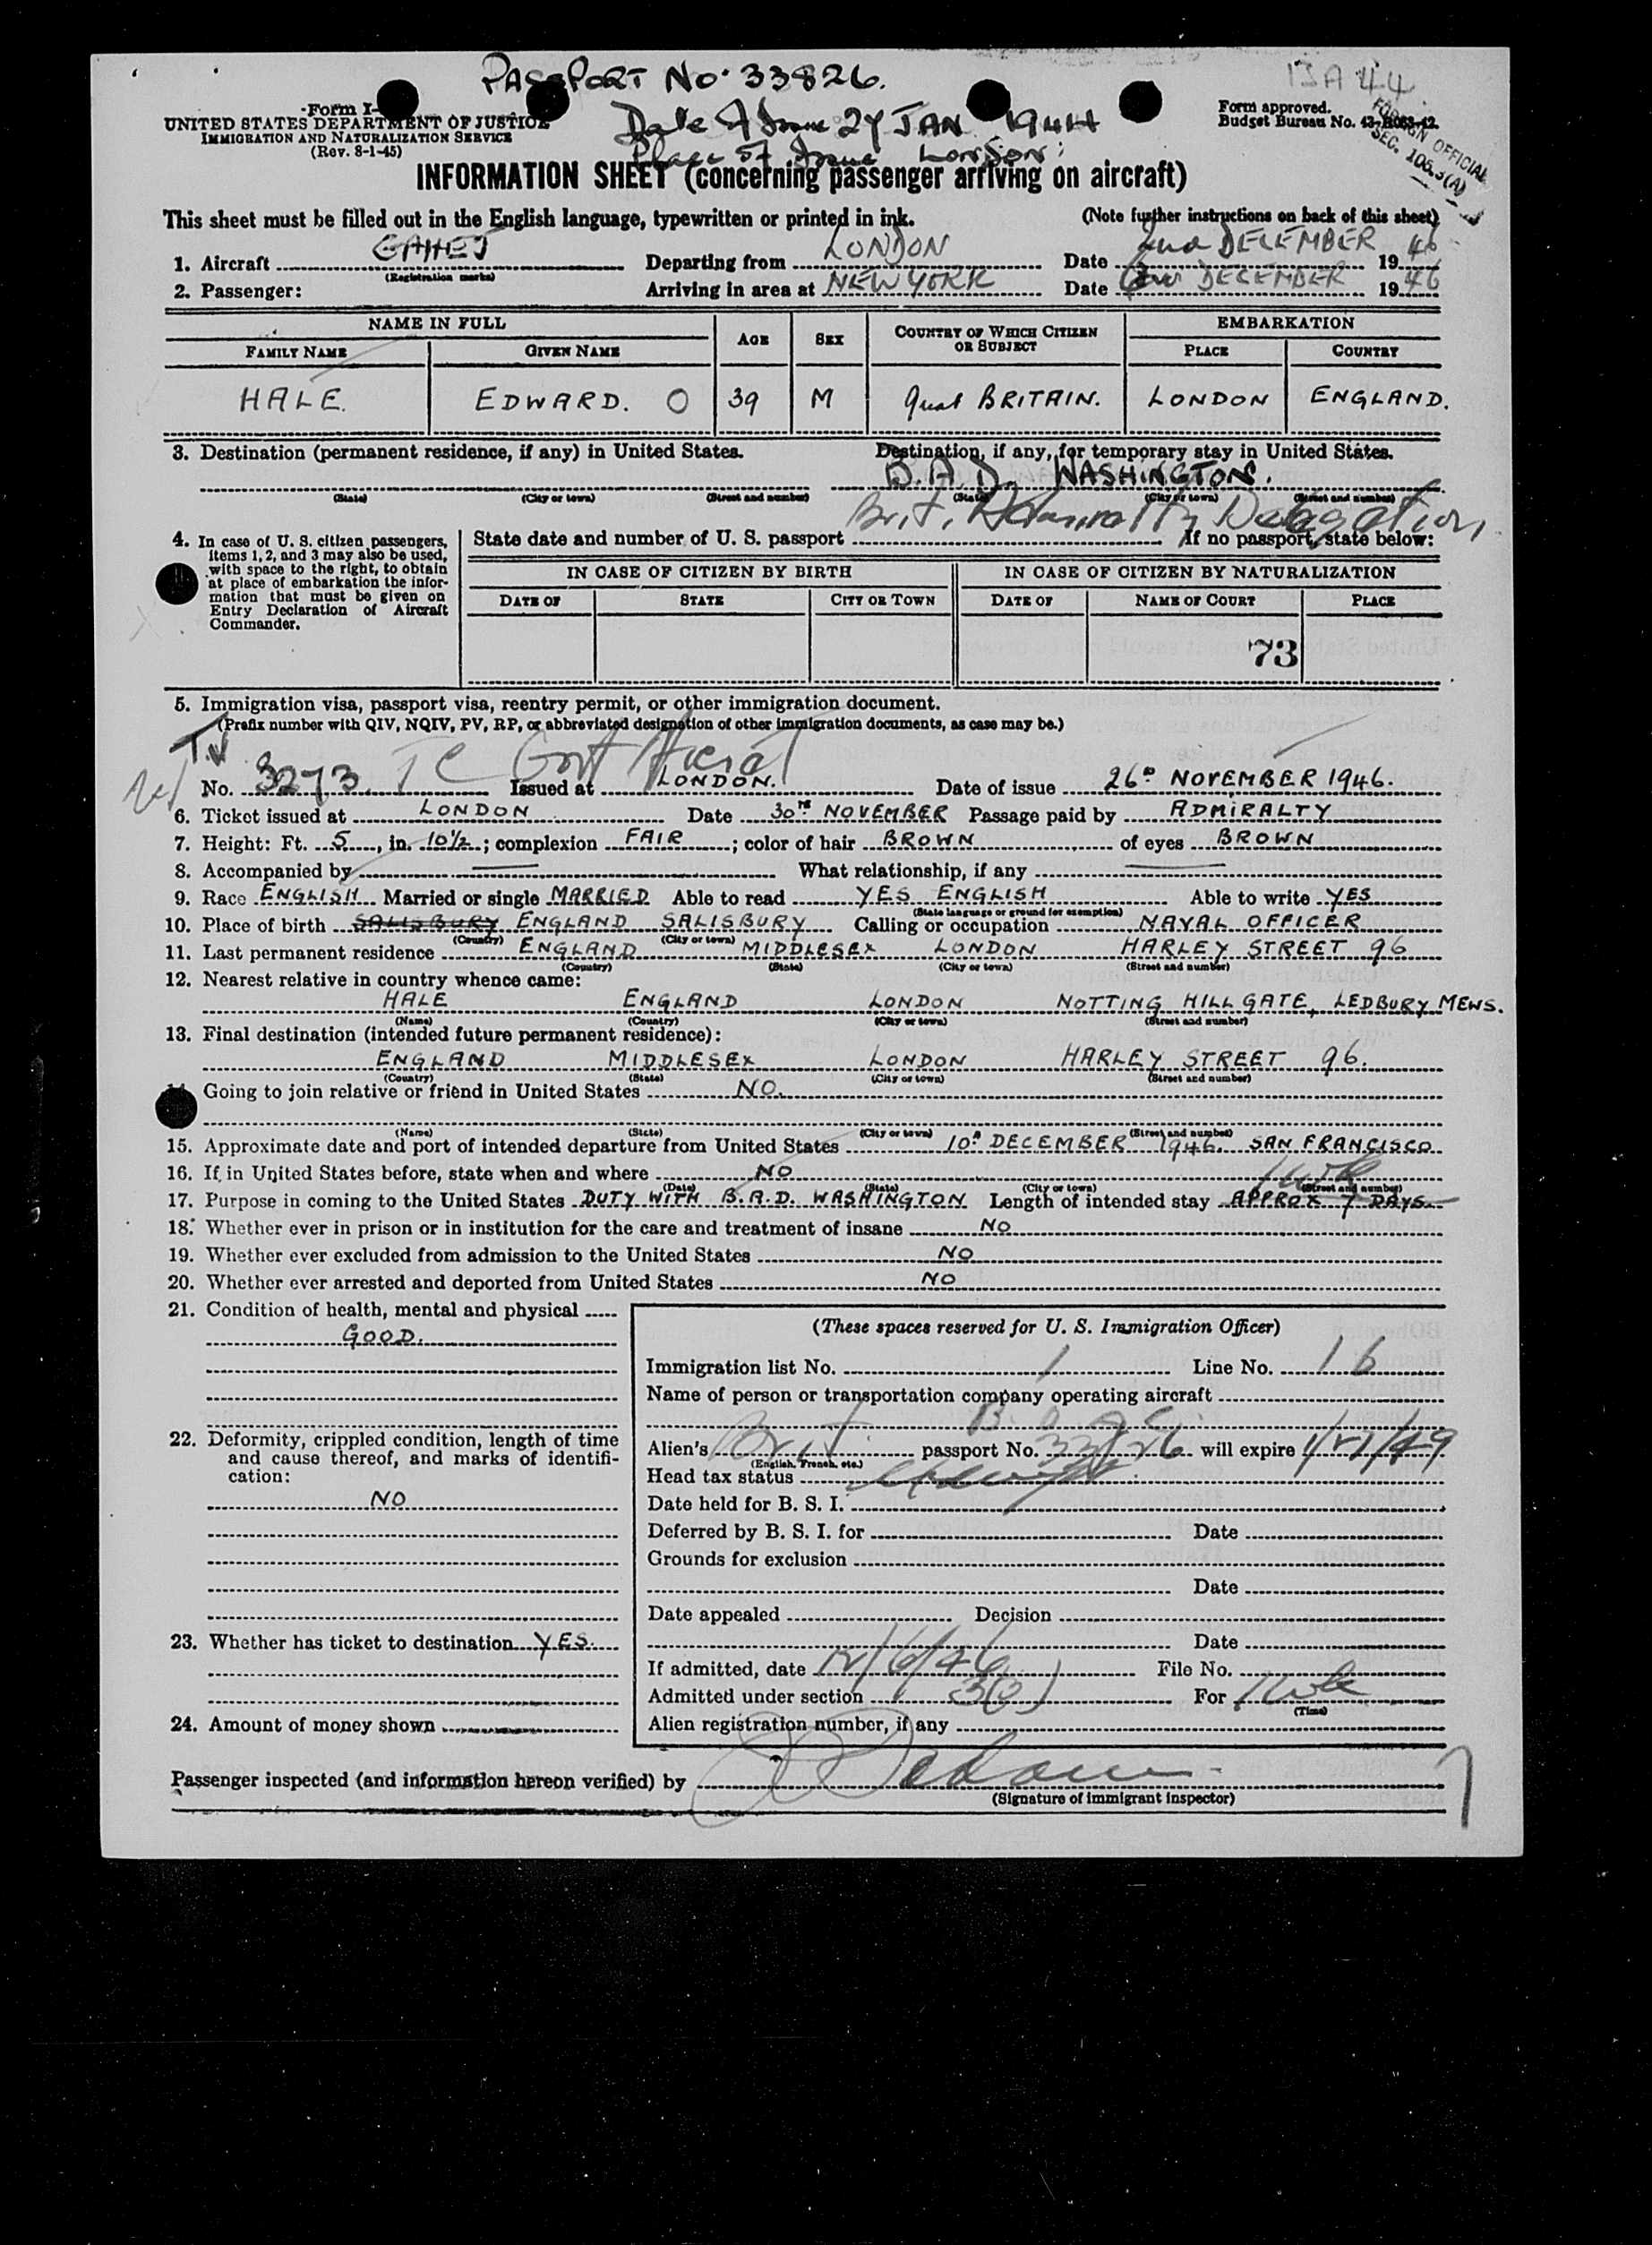 PASSPORT No. 33826.
13A44
Form I-
UNITED STATES DEPARTMENT OF JUSTICE
IMMIGRATION AND NATURALIZATION SERVICE
(Rev. 8-1-45)
Date of Issue 27 JAN 1944
Place of Issue London
Form approved.
Budget Bureau No. 43-R063-42.
FOREIGN OFFICIAL
SEC. 106.3(A)
INFORMATION SHEET (concerning passenger arriving on aircraft)
This sheet must be filled out in the English language, typewritten or printed in ink. (Note further instructions on back of this sheet)
1. Aircraft GAHEJ Departing from LONDON Date 2nd DECEMBER 1946
(Registration marks)
2. Passenger: Arriving in area at NEW YORK Date DECEMBER 1946
NAME IN FULL AGE SEX COUNTRY OF WHICH CITIZEN OR SUBJECT EMBARKATION
FAMILY NAME GIVEN NAME PLACE COUNTRY
HALE. EDWARD. O 39 M Great BRITAIN. LONDON ENGLAND.
3. Destination (permanent residence, if any) in United States. Destination, if any, for temporary stay in United States.
B.A.D. WASHINGTON.
(State) (City or town) (Street and number) (State) (City or town) (Street and number)
Brit. Admiralty Delegation
4. In case of U. S. citizen passengers, items 1, 2, and 3 may also be used, with space to the right, to obtain at place of embarkation the information that must be given on Entry Declaration of Aircraft Commander.
State date and number of U. S. passport If no passport, state below:
IN CASE OF CITIZEN BY BIRTH IN CASE OF CITIZEN BY NATURALIZATION
DATE OF STATE CITY OR TOWN DATE OF NAME OF COURT PLACE
73
5. Immigration visa, passport visa, reentry permit, or other immigration document.
(Prefix number with QIV, NQIV, PV, RP, or abbreviated designation of other immigration documents, as case may be.)
T.V. TC Govt Official
No. 3273 Issued at LONDON. Date of issue 26th NOVEMBER 1946.
6. Ticket issued at LONDON Date 30TH NOVEMBER Passage paid by ADMIRALTY
7. Height: Ft. 5, in. 10½; complexion FAIR; color of hair BROWN of eyes BROWN
8. Accompanied by — What relationship, if any —
9. Race ENGLISH Married or single MARRIED Able to read YES ENGLISH Able to write YES
(State language or ground for exemption)
10. Place of birth SALISBURY ENGLAND SALISBURY Calling or occupation NAVAL OFFICER
(Country) (City or town)
11. Last permanent residence ENGLAND MIDDLESEX LONDON HARLEY STREET 96
(Country) (State) (City or town) (Street and number)
12. Nearest relative in country whence came:
HALE ENGLAND LONDON NOTTING HILL GATE, LEDBURY MEWS.
(Name) (Country) (City or town) (Street and number)
13. Final destination (intended future permanent residence):
ENGLAND MIDDLESEX LONDON HARLEY STREET 96.
(Country) (State) (City or town) (Street and number)
Going to join relative or friend in United States NO.
(Name) (State) (City or town) (Street and number)
15. Approximate date and port of intended departure from United States 10th DECEMBER 1946. SAN FRANCISCO
16. If in United States before, state when and where NO
(Date) (State) (City or town) (Street and number)
1 wk
17. Purpose in coming to the United States DUTY WITH B.A.D. WASHINGTON Length of intended stay APPROX 7 DAYS
18. Whether ever in prison or in institution for the care and treatment of insane NO
19. Whether ever excluded from admission to the United States NO
20. Whether ever arrested and deported from United States NO
21. Condition of health, mental and physical
GOOD.
22. Deformity, crippled condition, length of time and cause thereof, and marks of identification:
NO
23. Whether has ticket to destination YES.
24. Amount of money shown
(These spaces reserved for U. S. Immigration Officer)
Immigration list No. 1 Line No. 16
Name of person or transportation company operating aircraft
B.O.A.C.
Alien's Brit. passport No. 33826 will expire 1/27/49
(English, French, etc.)
Head tax status
Date held for B. S. I.
Deferred by B. S. I. for Date
Grounds for exclusion
Date
Date appealed Decision
Date
If admitted, date 12/6/46 File No.
Admitted under section 3(1) For 1 wk
(Time)
Alien registration number, if any
Passenger inspected (and information hereon verified) by
(Signature of immigrant inspector)